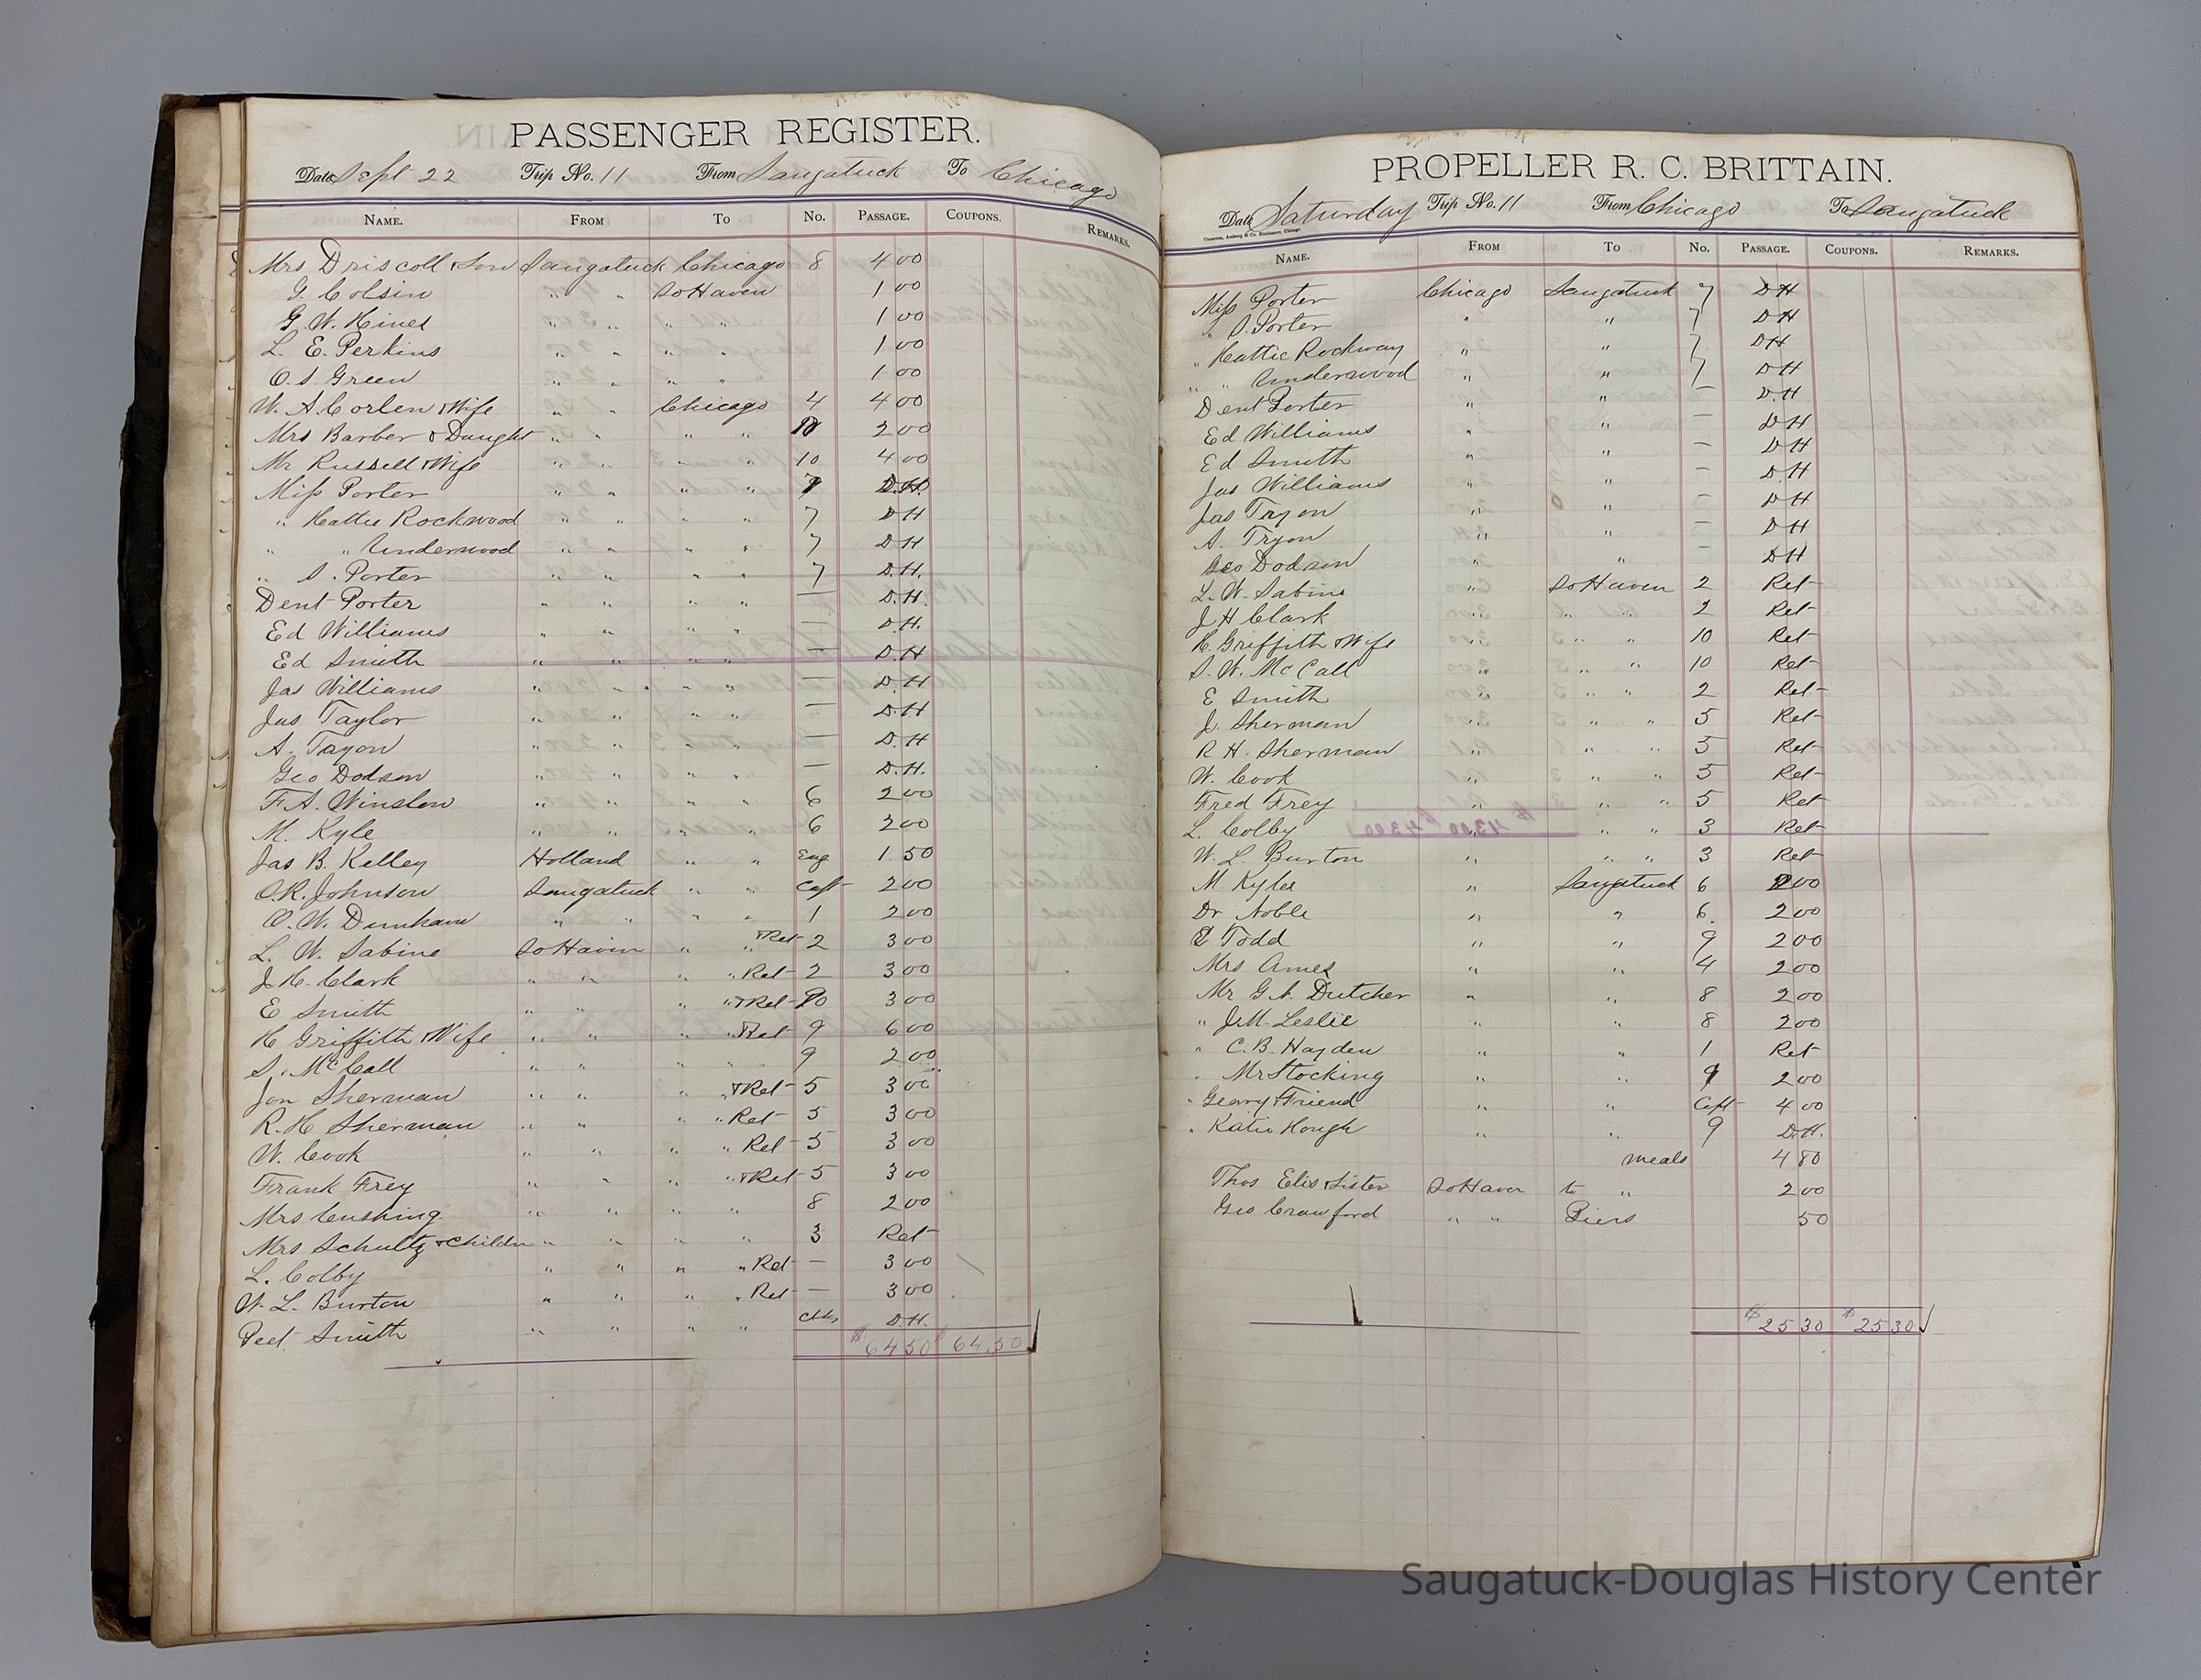 PASSENGER REGISTER.
Date Sept 22 Trip No. 11 From Saugatuck To Chicago
NAME. FROM TO NO. PASSAGE. COUPONS. REMARKS.
Mrs Driscoll & Son Saugatuck Chicago 8 4 00
G. Colsin " " So Haven 1 00
G. W. Hines " " " " 1 00
L. E. Perkins " " " " 1 00
O. S. Green " " " " 1 00
W. A. Corlen & Wife " " Chicago 4 4 00
Mrs Barber & Daught " " " " 2 00
Mr Russell & Wife " " " " 10 4 00
Miss Porter " " " " 7 D.H.
" Hattie Rockwood " " " " 7 D H
" " Underwood " " " " 7 D H
" S. Porter " " " " 7 D.H.
Dent Porter " " " " — D.H.
Ed Williams " " " " — D.H.
Ed Smith " " " " — D.H
Jas Williams " " " " — D.H
Jas Taylor " " " " — D.H
A. Tryon " " " " — D.H
Geo Dodson " " " " — D.H.
F. A. Winslow " " " " 6 2 00
M. Kyle " " " " 6 2 00
Jas B. Kelley Holland " " Eng 1 50
O. R. Johnson Saugatuck " " Capt 2 00
O. W. Dunham " " " " 1 2 00
L. W. Sabine So Haven " " & Ret 2 3 00
J. H. Clark " " " " Ret 2 3 00
E Smith " " " " & Ret 3 00
H Griffith & Wife " " " " Ret 9 6 00
S. McCall " " " " 9 2 00
Jon Sherman " " " " & Ret 5 3 00
R. H Sherman " " " " Ret 5 3 00
W. Cook " " " " Ret 5 3 00
Frank Frey " " " " & Ret 5 3 00
Mrs Cushing " " " " 8 2 00
Mrs Schultz & Childn " " " " 3 Ret
L. Colby " " " " Ret — 3 00
W. L. Burton " " " " Ret — 3 00
Peet Smith " " " " Clks D.H.
$ 64 50 64.50
PROPELLER R. C. BRITTAIN.
Date Saturday Trip No. 11 From Chicago To Saugatuck
NAME. FROM TO NO. PASSAGE. COUPONS. REMARKS.
Miss Porter Chicago Saugatuck 7 D H
" S. Porter " " 7 D H
" Hattie Rockway " " 7 D H
" " Underwood " " 7 D H
Dent Porter " " — D.H
Ed Williams " " — D H
Ed Smith " " — D H
Jas Williams " " — D H
Jas Tryon " " — D H
A. Tryon " " — D H
Geo Dodson " " — D H
L. W. Sabine " So Haven 2 Ret
J H Clark " " " 2 Ret
H. Griffith & Wife " " " 10 Ret
S. W. McCall " " " 10 Ret
E Smith " " " 2 Ret
J. Sherman " " " 5 Ret
R H. Sherman " " " 5 Ret
W. Cook " " " 5 Ret
Fred Frey " " 5 Ret
L. Colby " " " 3 Ret
W. L. Burton " " " 3 Ret
M. Kyler " Saugatuck 6 2 00
Dr Noble " " 6. 2 00
Todd " " 9 2 00
Mrs Ames " " 4 2 00
Mr G. A. Dutcher " " 8 2 00
" J. M. Leslie " " 8 2 00
" C. B. Hayden " " 1 Ret
" Mr Stocking " " 9 2 00
" Geary & Friend " " Capt 4 00
" Katie Hough " " 9 D.H.
meals 4 80
Thos Elis & Sister So Haven to " 2 00
Geo Crawford " " Piers 50
$ 25 30 $ 25 30
Saugatuck-Douglas History Center